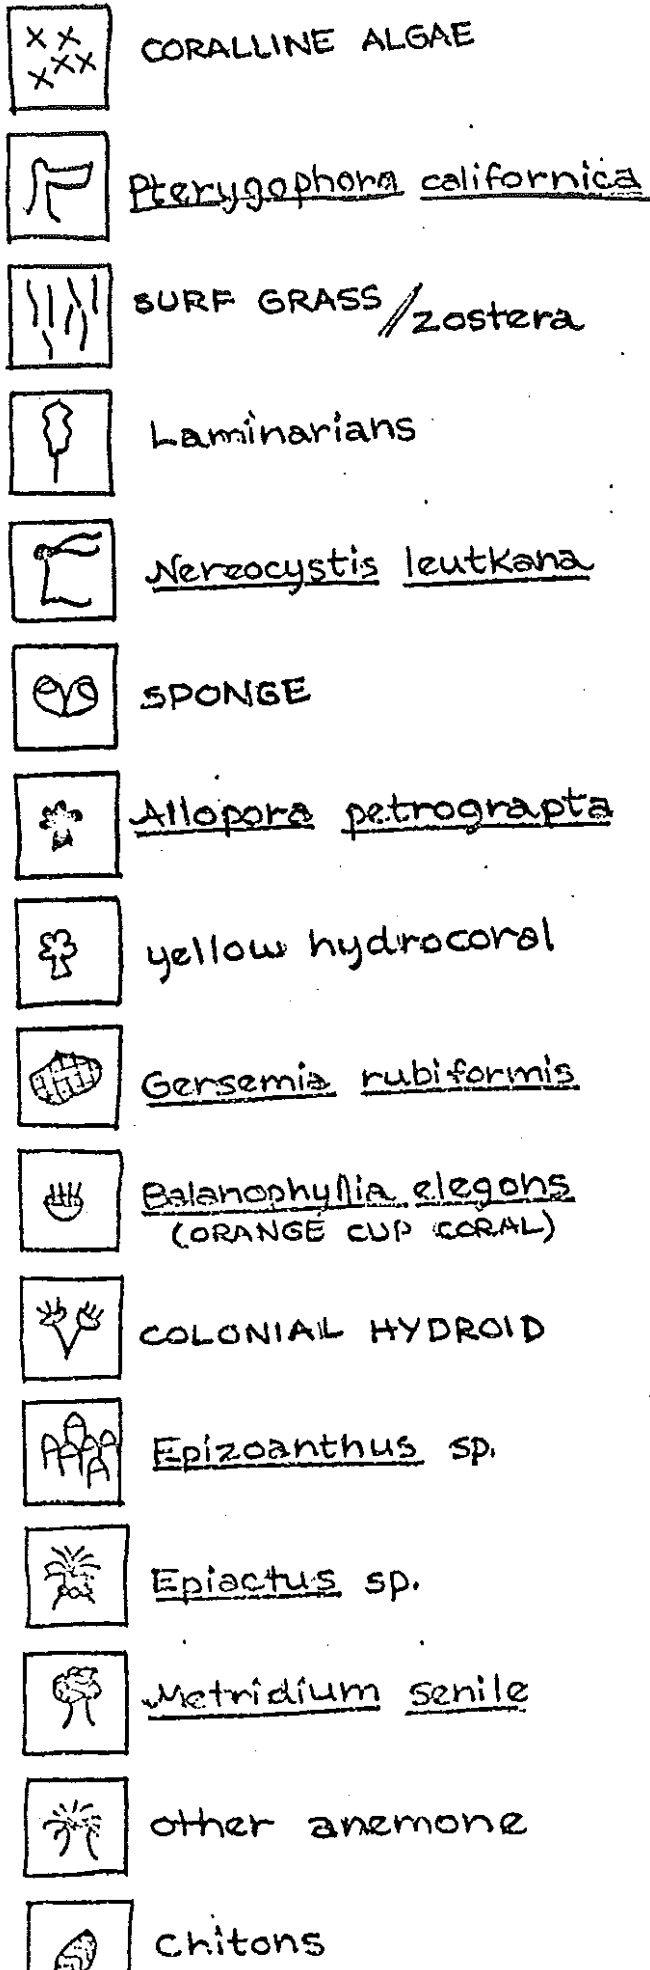 CORALLINE ALGAE
Pterygophora californica
SURF GRASS/zostera
Laminarians
Nereocystis leutkana
SPONGE
Allopora petrograpta
yellow hydrocoral
Gersemia rubiformis
Balanophyllia elegans
(ORANGE CUP CORAL)
COLONIAL HYDROID
Epizoanthus sp.
Epiactus sp.
Metridium senile
other anemone
Chitons